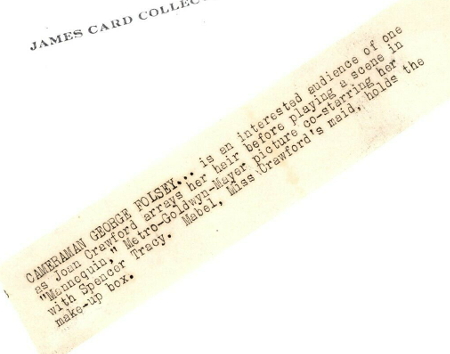 JAMES CARD COLLEC
CAMERAMAN GEORGE FOLSEY... is an interested audience of one
as Joan Crawford arrays her hair before playing a scene in
"Mannequin," Metro-Goldwyn-Mayer picture co-starring her
with Spencer Tracy. Mabel, Miss Crawford's maid, holds the
make-up box.